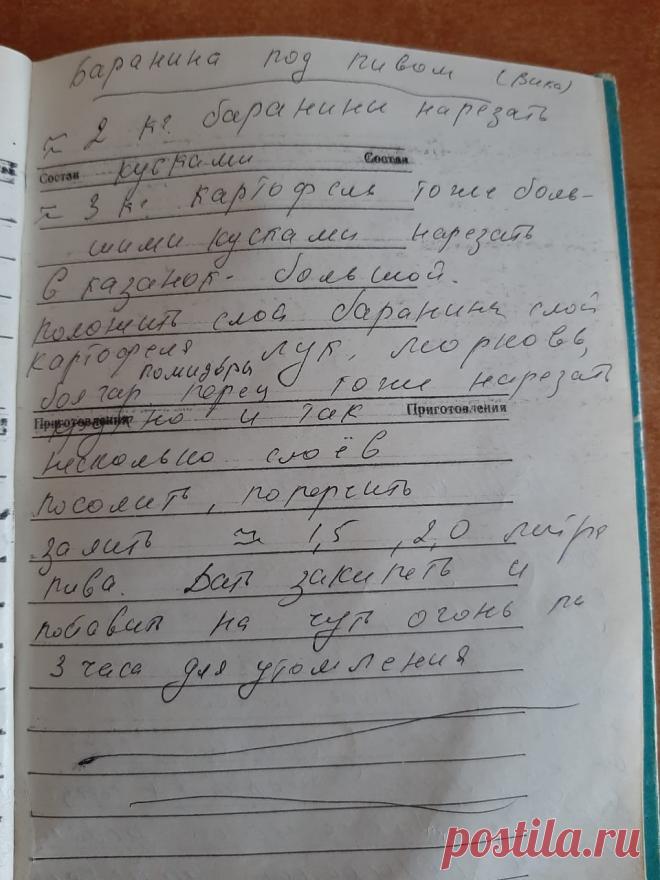 Баранина под пивом (Вика)
≈ 2 кг. баранини нарезать
Состав кусками Состав
≈ 3 кг картофель тоже боль-
шими кусками нарезать
В казанок- большой.
положить слой баранины слой
картофеля лук, морковь,
помидоры
болгар. перец тоже нарезать
Приготовления крупно и так Приготовления
несколько слоёв
посолить, поперчить
залить ≈ 1,5, 2,0 литра
пива. Дать закипеть и
на чуть огонь на
3 часа для утомления
postila.ru